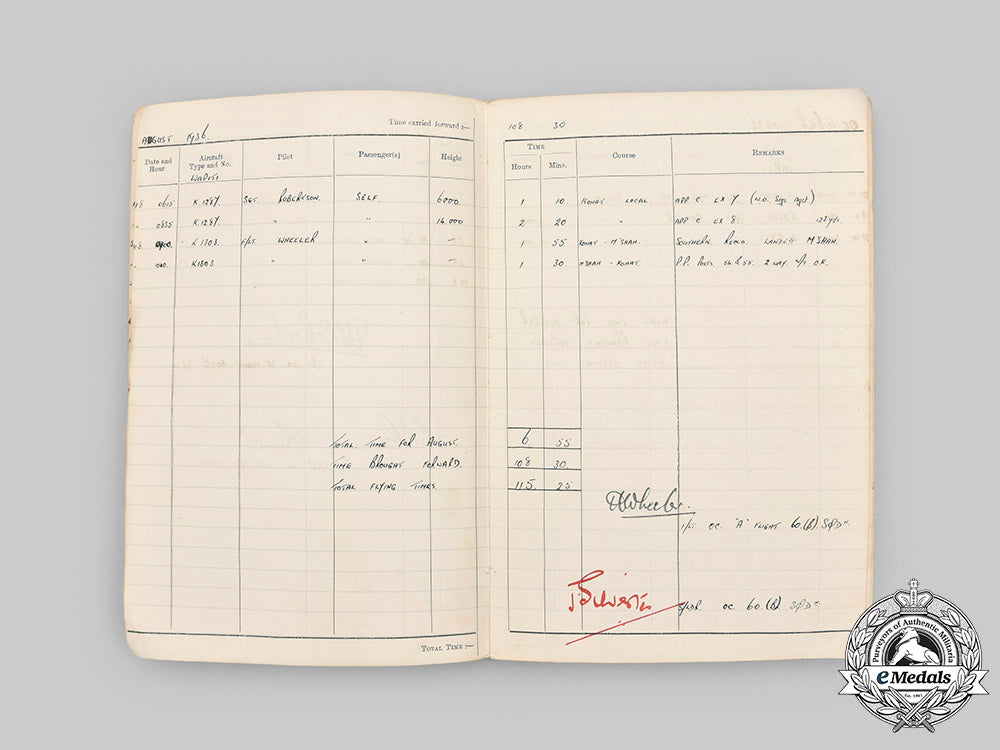 AUGUST 1936.
Time carried forward :—
Date and Hour
Aircraft Type and No.
Pilot
Passenger(s)
Height
WAPITI
0615 K.1287. SGT. ROBERTSON. SELF. 6000.
0835 K.1287. " " " 14.000
K 1303. F/LT. WHEELER " –
K1303 " " –
TOTAL TIME FOR AUGUST.
TIME BROUGHT FORWARD.
TOTAL FLYING TIMES.
TOTAL TIME :—
108 30
TIME
Hours
Mins.
Course
REMARKS
1 10 KOHAT LOCAL APP C. EX 7.
2 20 " " APP C. EX 8.
1 55 KOHAT - M'SHAH. SOUTHERN. RECO. LANDED M'SHAH.
1 30. M'SHAH - KOHAT. P.P. POSTS. 2 WAY. O.K.
6. 55
108 30.
115. 25
Wheeler.
F/LT. OC. "A" FLIGHT. 60.(B). SQDN
S/LDR OC 60.(B) SQDN
Purveyors of Authentic Militaria
eMedals